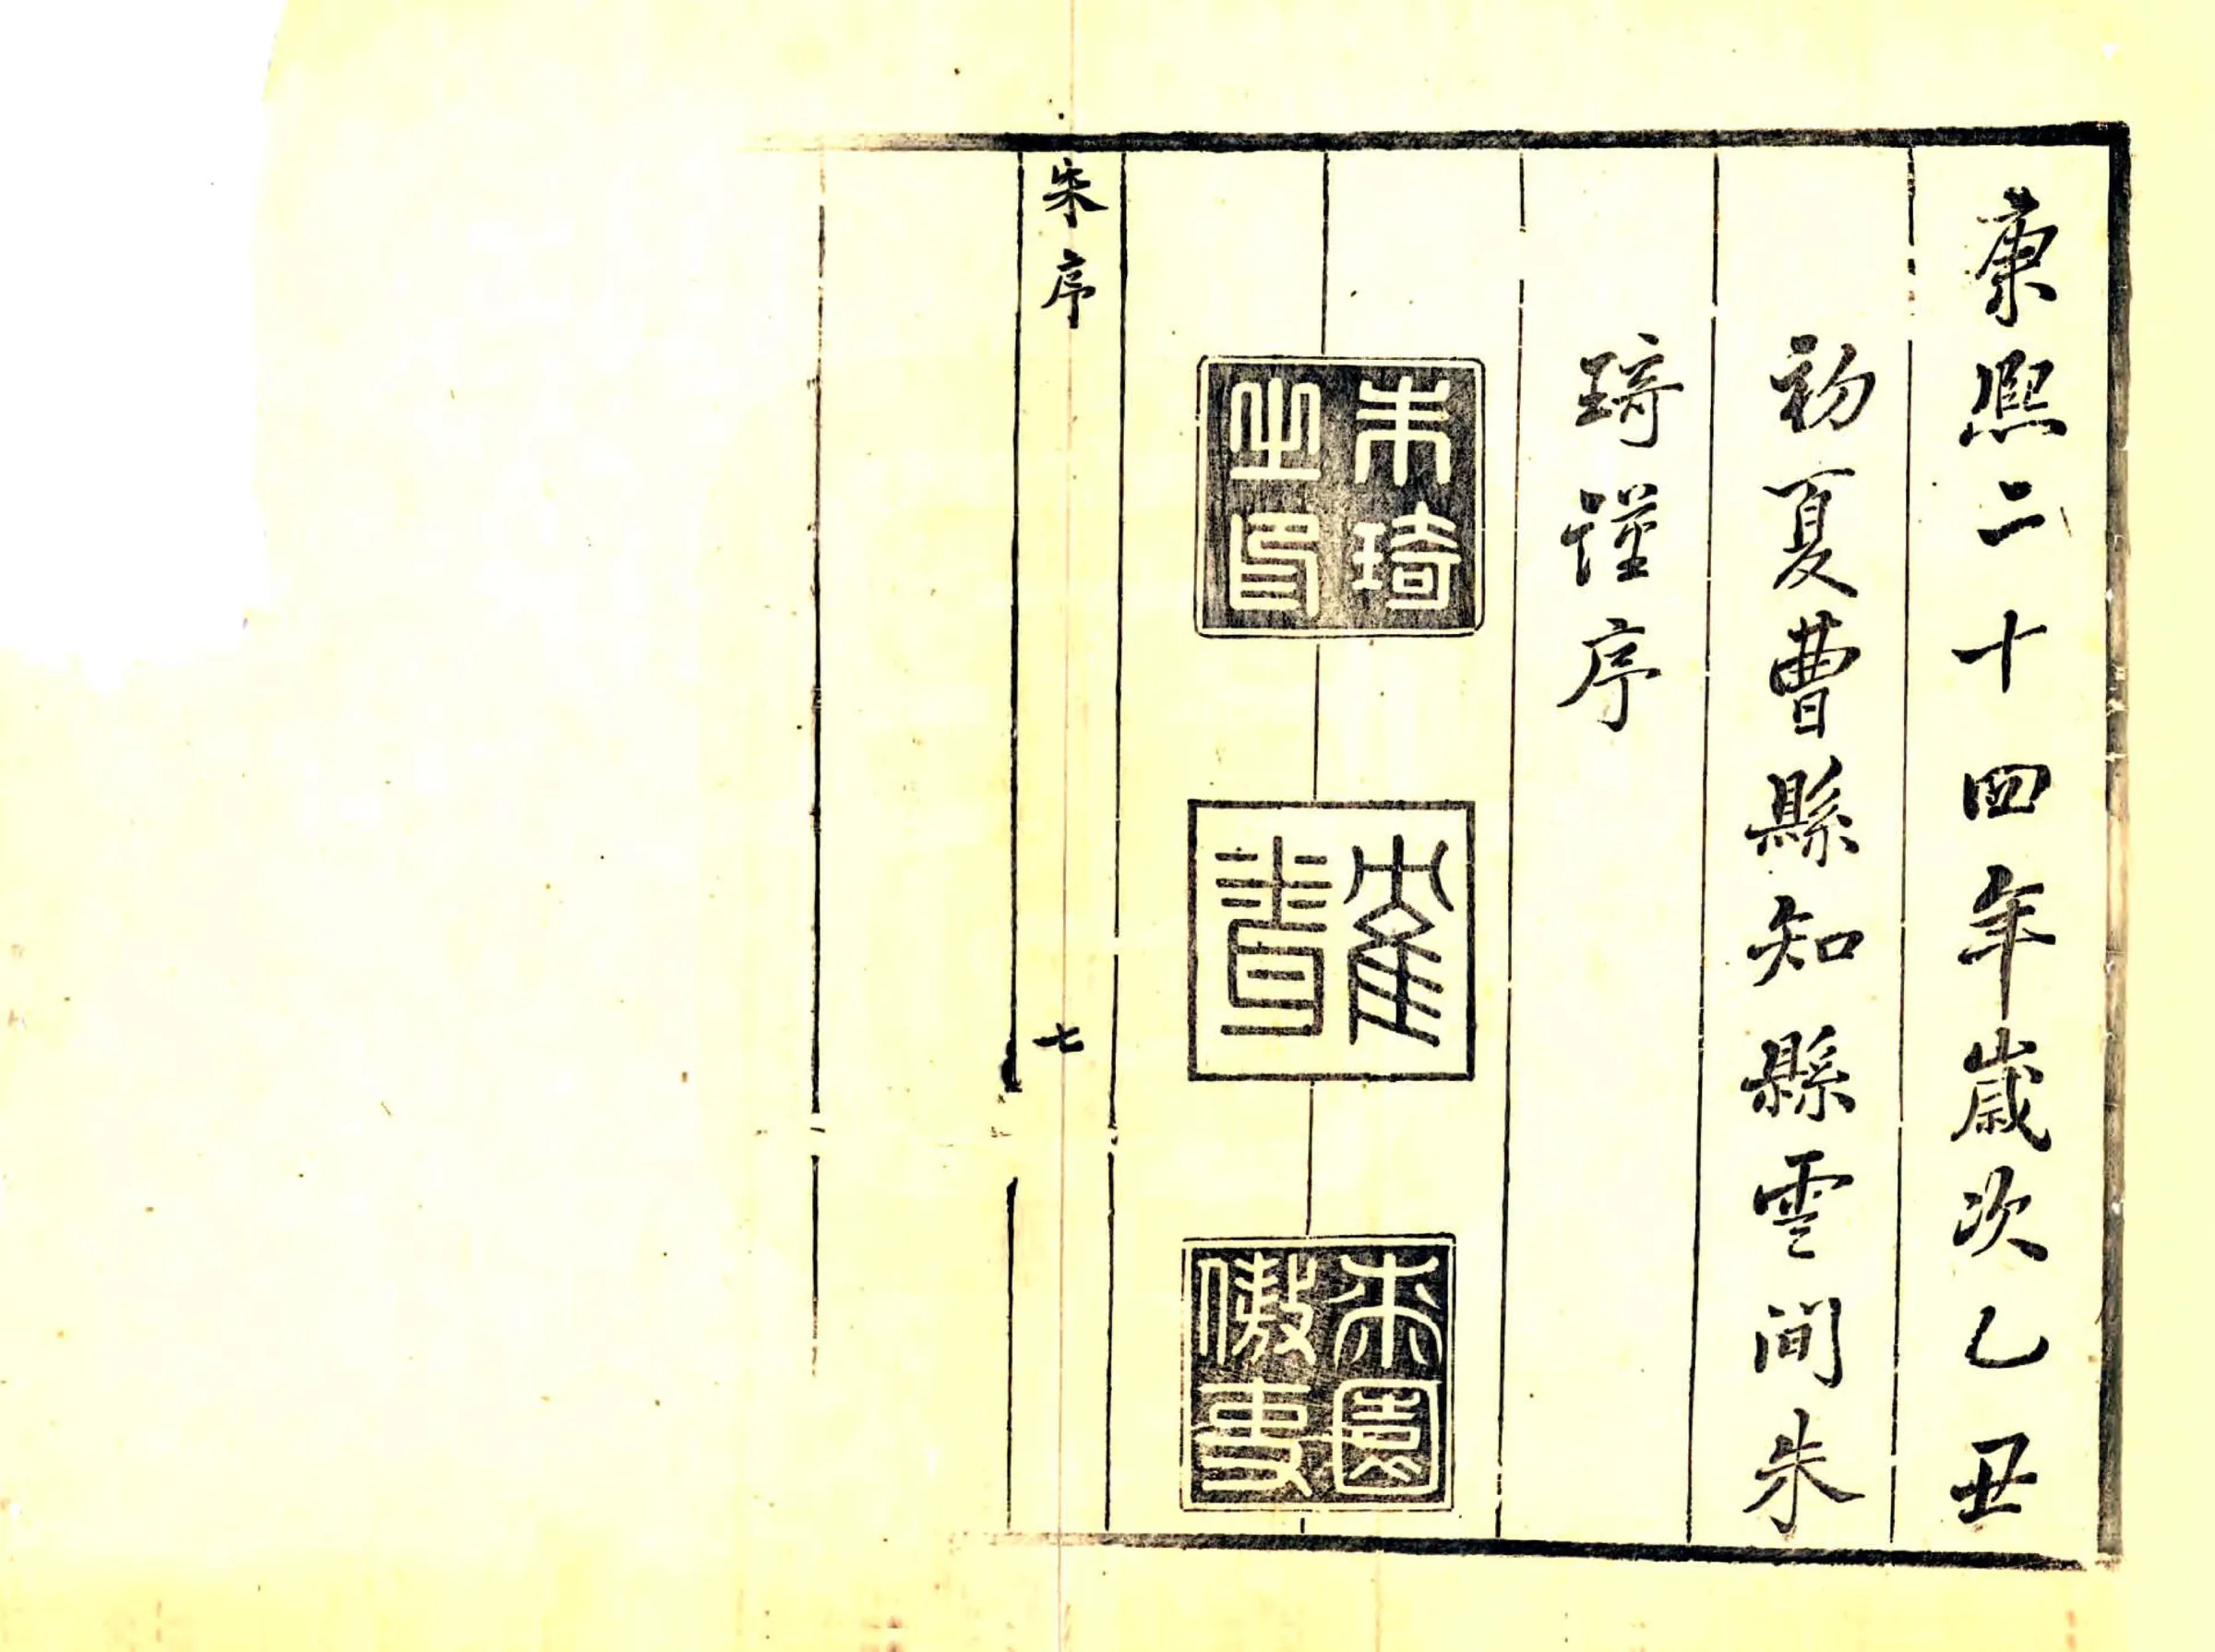 康熙二十四年歲次乙丑
初夏曹縣知縣雲間朱
琦謹序
朱琦之印
桼園傲吏
朱序
七